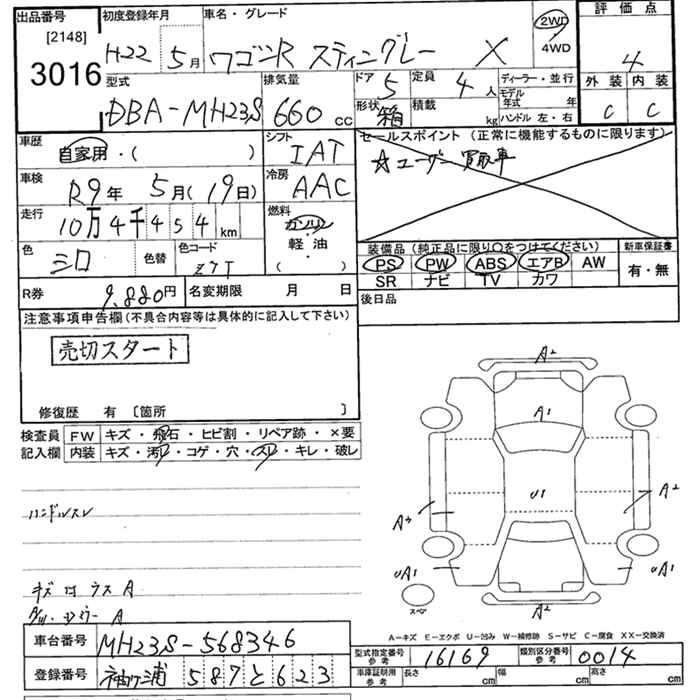 出品番号 初度登録年月 車名・グレード 2WD 評価点
[2148] H22 5月 ワゴンR スティングレー X 4WD 4
3016
型式 排気量 ドア 5 定員 4人 ディーラー・並行 外装 内装
DBA-MH23S 660cc 形状 箱 積載 kg モデル年式 年 C C
ハンドル 左・右
車歴 自家用・( ) シフト IAT セールスポイント(正常に機能するものに限ります)
☆ユーザー買取車
車検 R9年 5月(19日) 冷房 AAC
走行 10万4千454km 燃料 ガソリン・軽油・( )
色 シロ 色替 色コード Z7T
装備品(純正品に限り○をつけてください) 新車保証書
PS PW ABS エアB AW 有・無
SR ナビ TV カワ
R券 9,880円 名変期限 月 日 後日品
注意事項申告欄(不具合内容等は具体的に記入して下さい)
売切スタート
修復歴 有 〔箇所 〕
検査員 FW キズ・飛石・ヒビ割・リペア跡・×要
記入欄 内装 キズ・汚れ・コゲ・穴・スレ・キレ・破レ
ハンドルスレ
A2
A1
U1
A3 A2
UA1 UA1
スペア A2
A-キズ E-エクボ U-凹み W-補修跡 S-サビ C-腐食 XX-交換済
車台番号 MH23S-568346
型式指定番号 参考 16169 類別区分番号 参考 0014
登録番号 袖ヶ浦 587と623
車庫証明用 参考 長さ cm 幅 cm 高さ cm